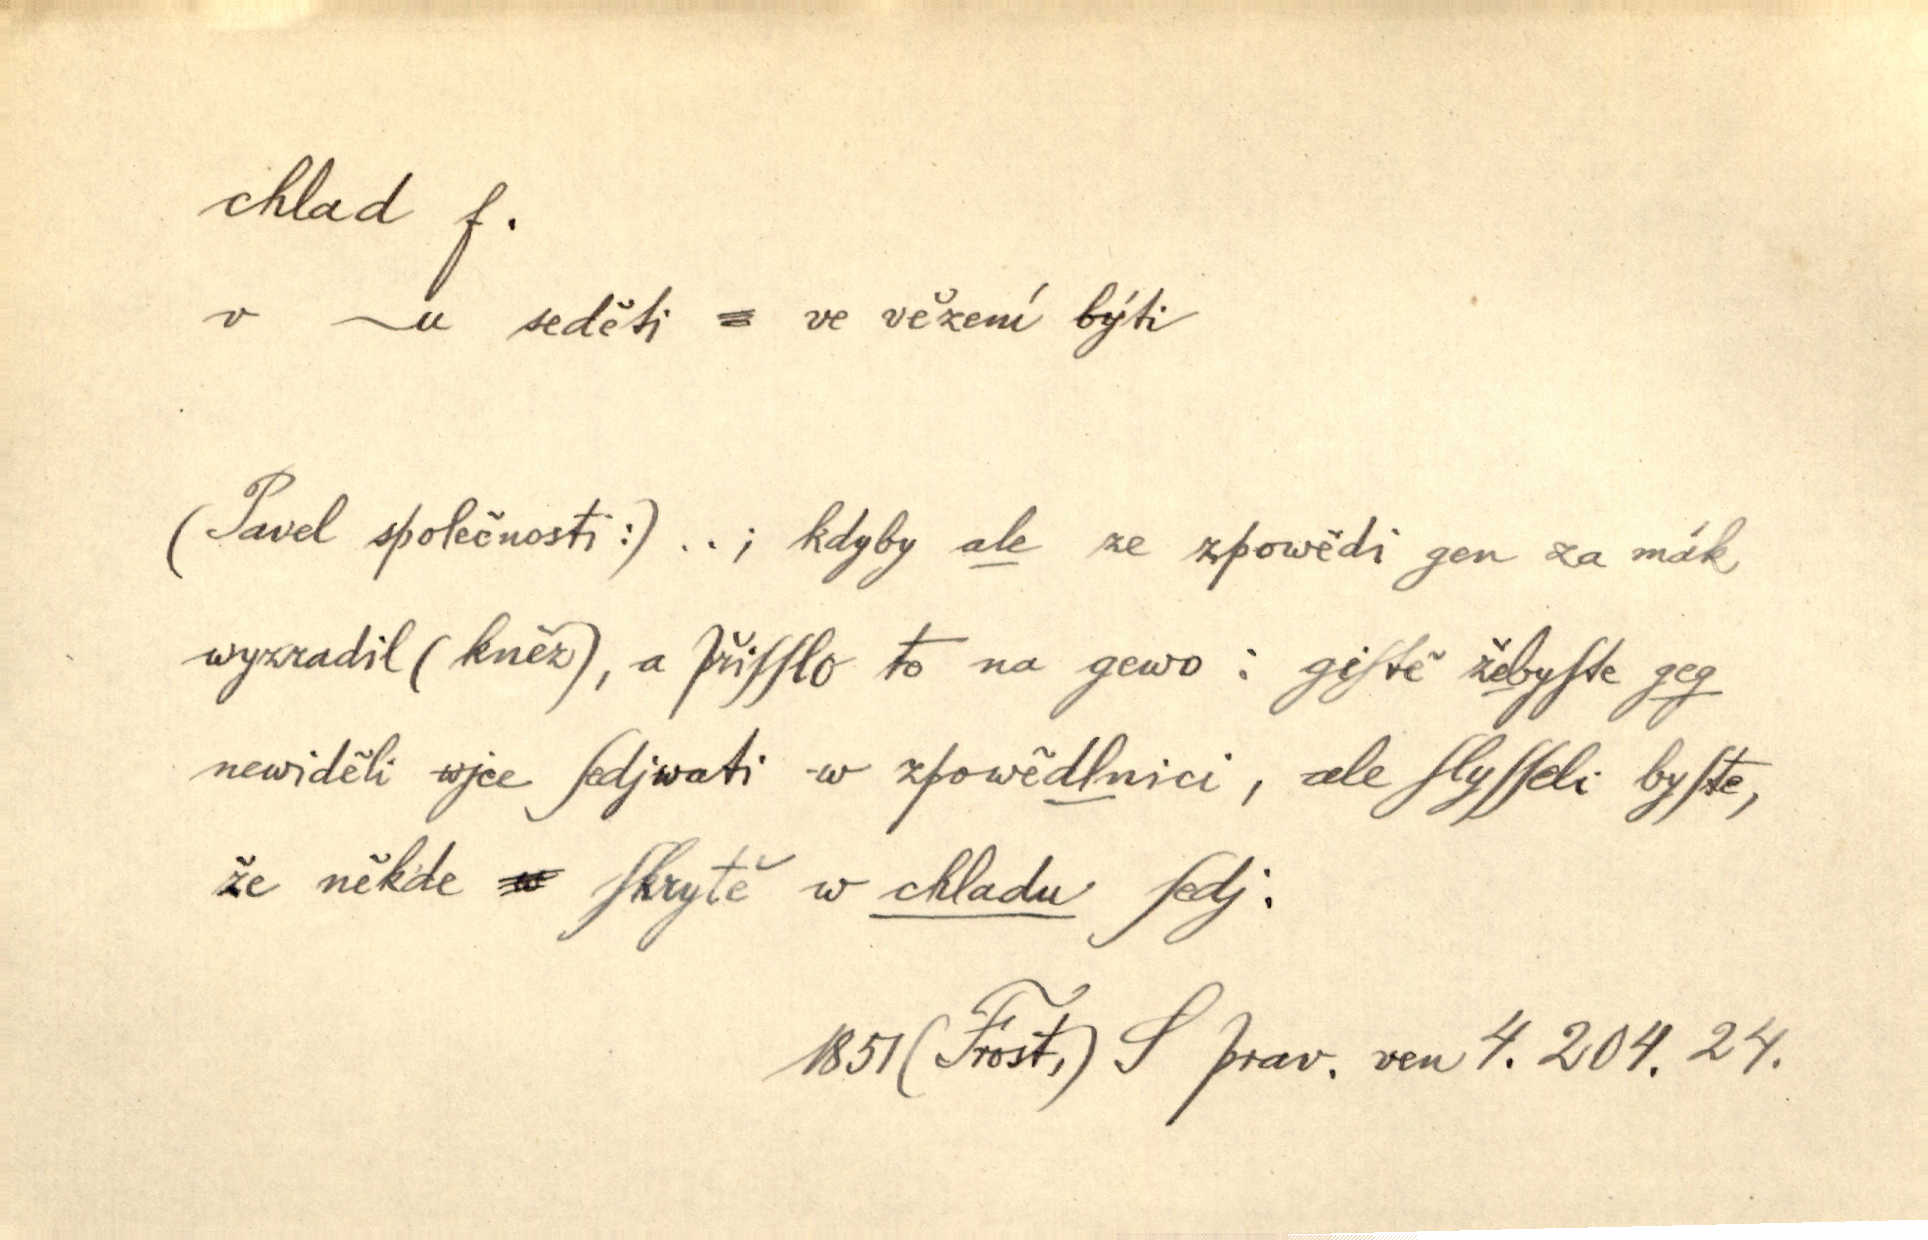 chlad f.
v ~u seděti = ve vězení býti
(Pavel společnosti:) ..; kdyby ale ze zpowědi gen za mák
wyzradil (kněz), a přiſſlo to na gewo: giſtě žebyſte geg
newiděli wjce ſedjwati w zpowědlnici, ale ſlyſſeli byſte,
že někde ſkrytě w chladu ſedj.
1851 (Frost,) S prav. ven 4. 204. 24.